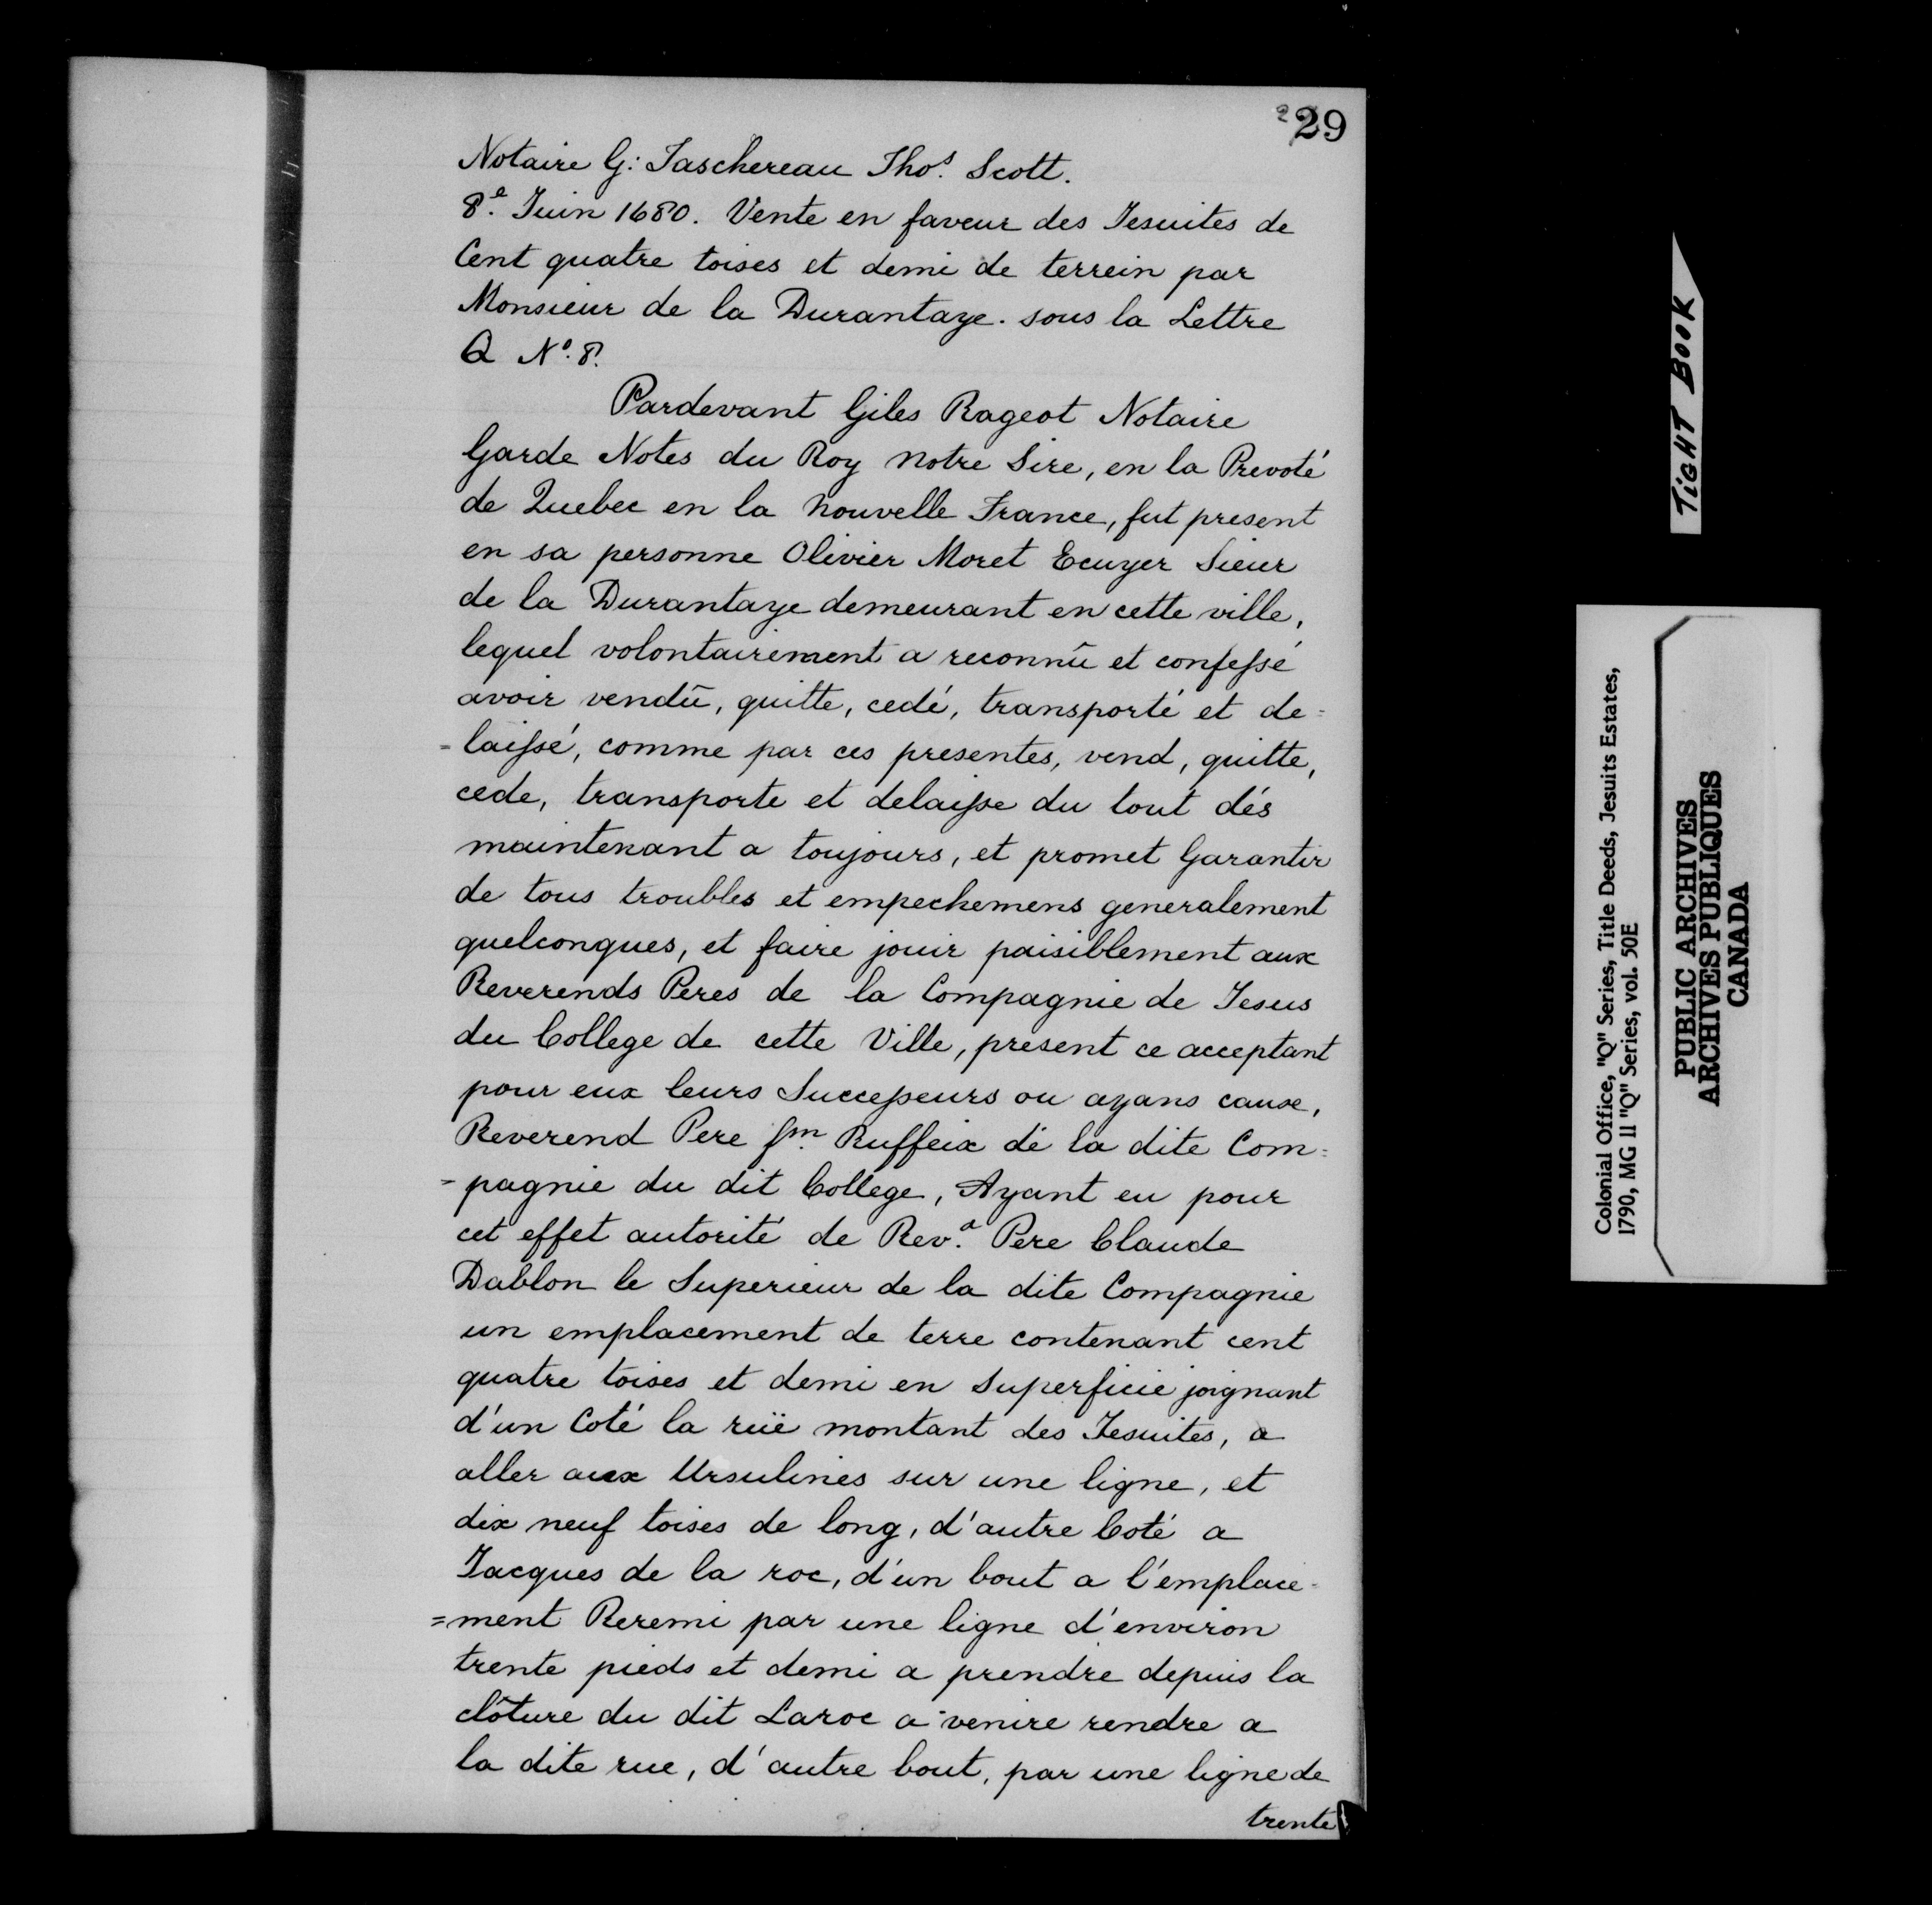 29
Notaire G: Taschereau Thos. Scott.
8e. Juin 1680. Vente en faveur des Jesuites de
Cent quatre toises et demi de terrein par
Monsieur de la Durantaye. sous la Lettre
Q No. 8.
Pardevant Giles Rageot Notaire
Garde Notes du Roy notre Sire, en la Prevoté
de Quebec en la nouvelle France, fut present
en sa personne Olivier Moret Ecuyer Sieur
de la Durantaye demeurant en cette ville,
lequel volontairement a reconnû et confessé
avoir vendû, quitte, cedé, transporté et de=
=laissé, comme par ces presentes, vend, quitte,
cede, transporte et delaisse du tout dés
maintenant a toujours, et promet Garantir
de tous troubles et empechemens generalement
quelconques, et faire jouir paisiblement aux
Reverends Peres de la Compagnie de Jesus
du College de cette Ville, present ce acceptant
pour eux leurs Successeurs ou ayans cause,
Reverend Pere fm. Ruffeix de la dite Com=
=pagnie du dit College, Ayant eu pour
cet effet autorité de Revd. Pere Claude
Dablon le Superieur de la dite Compagnie
un emplacement de terre contenant cent
quatre toises et demi en Superficie joignant
d'un Coté la rüe montant des Jesuites, a
aller aux Ursulines sur une ligne, et
dix neuf toises de long, d'autre Coté a
Jacques de la roc, d'un bout a l'emplace=
=ment Reremi par une ligne d'environ
trente pieds et demi a prendre depuis la
clôture du dit Laroc a venire rendre a
la dite rue, d'autre bout, par une ligne de
trente
TIGHT BOOK
Colonial Office, "Q" Series, Title Deeds, Jesuits Estates,
1790, MG 11 "Q" Series, vol. 50E
PUBLIC ARCHIVES
ARCHIVES PUBLIQUES
CANADA